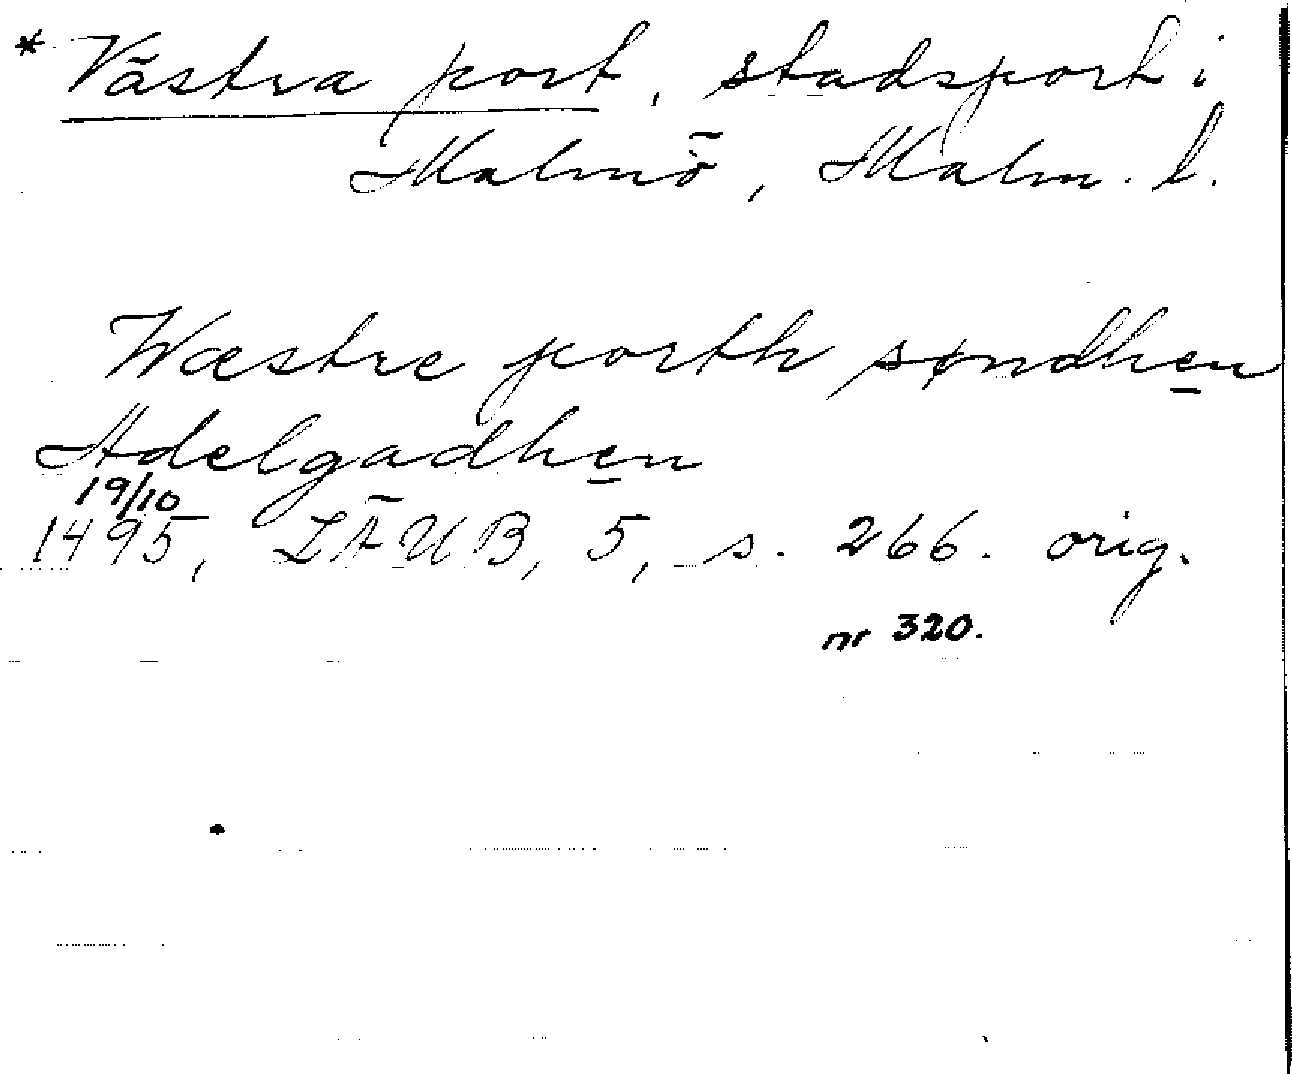 * Västra port, stadsport i
Malmö, Malm. l.
Wæstre porth søndhen
Adelgadhen
19/10
1495, LÄUB, 5, s. 266. orig.
nr 320.